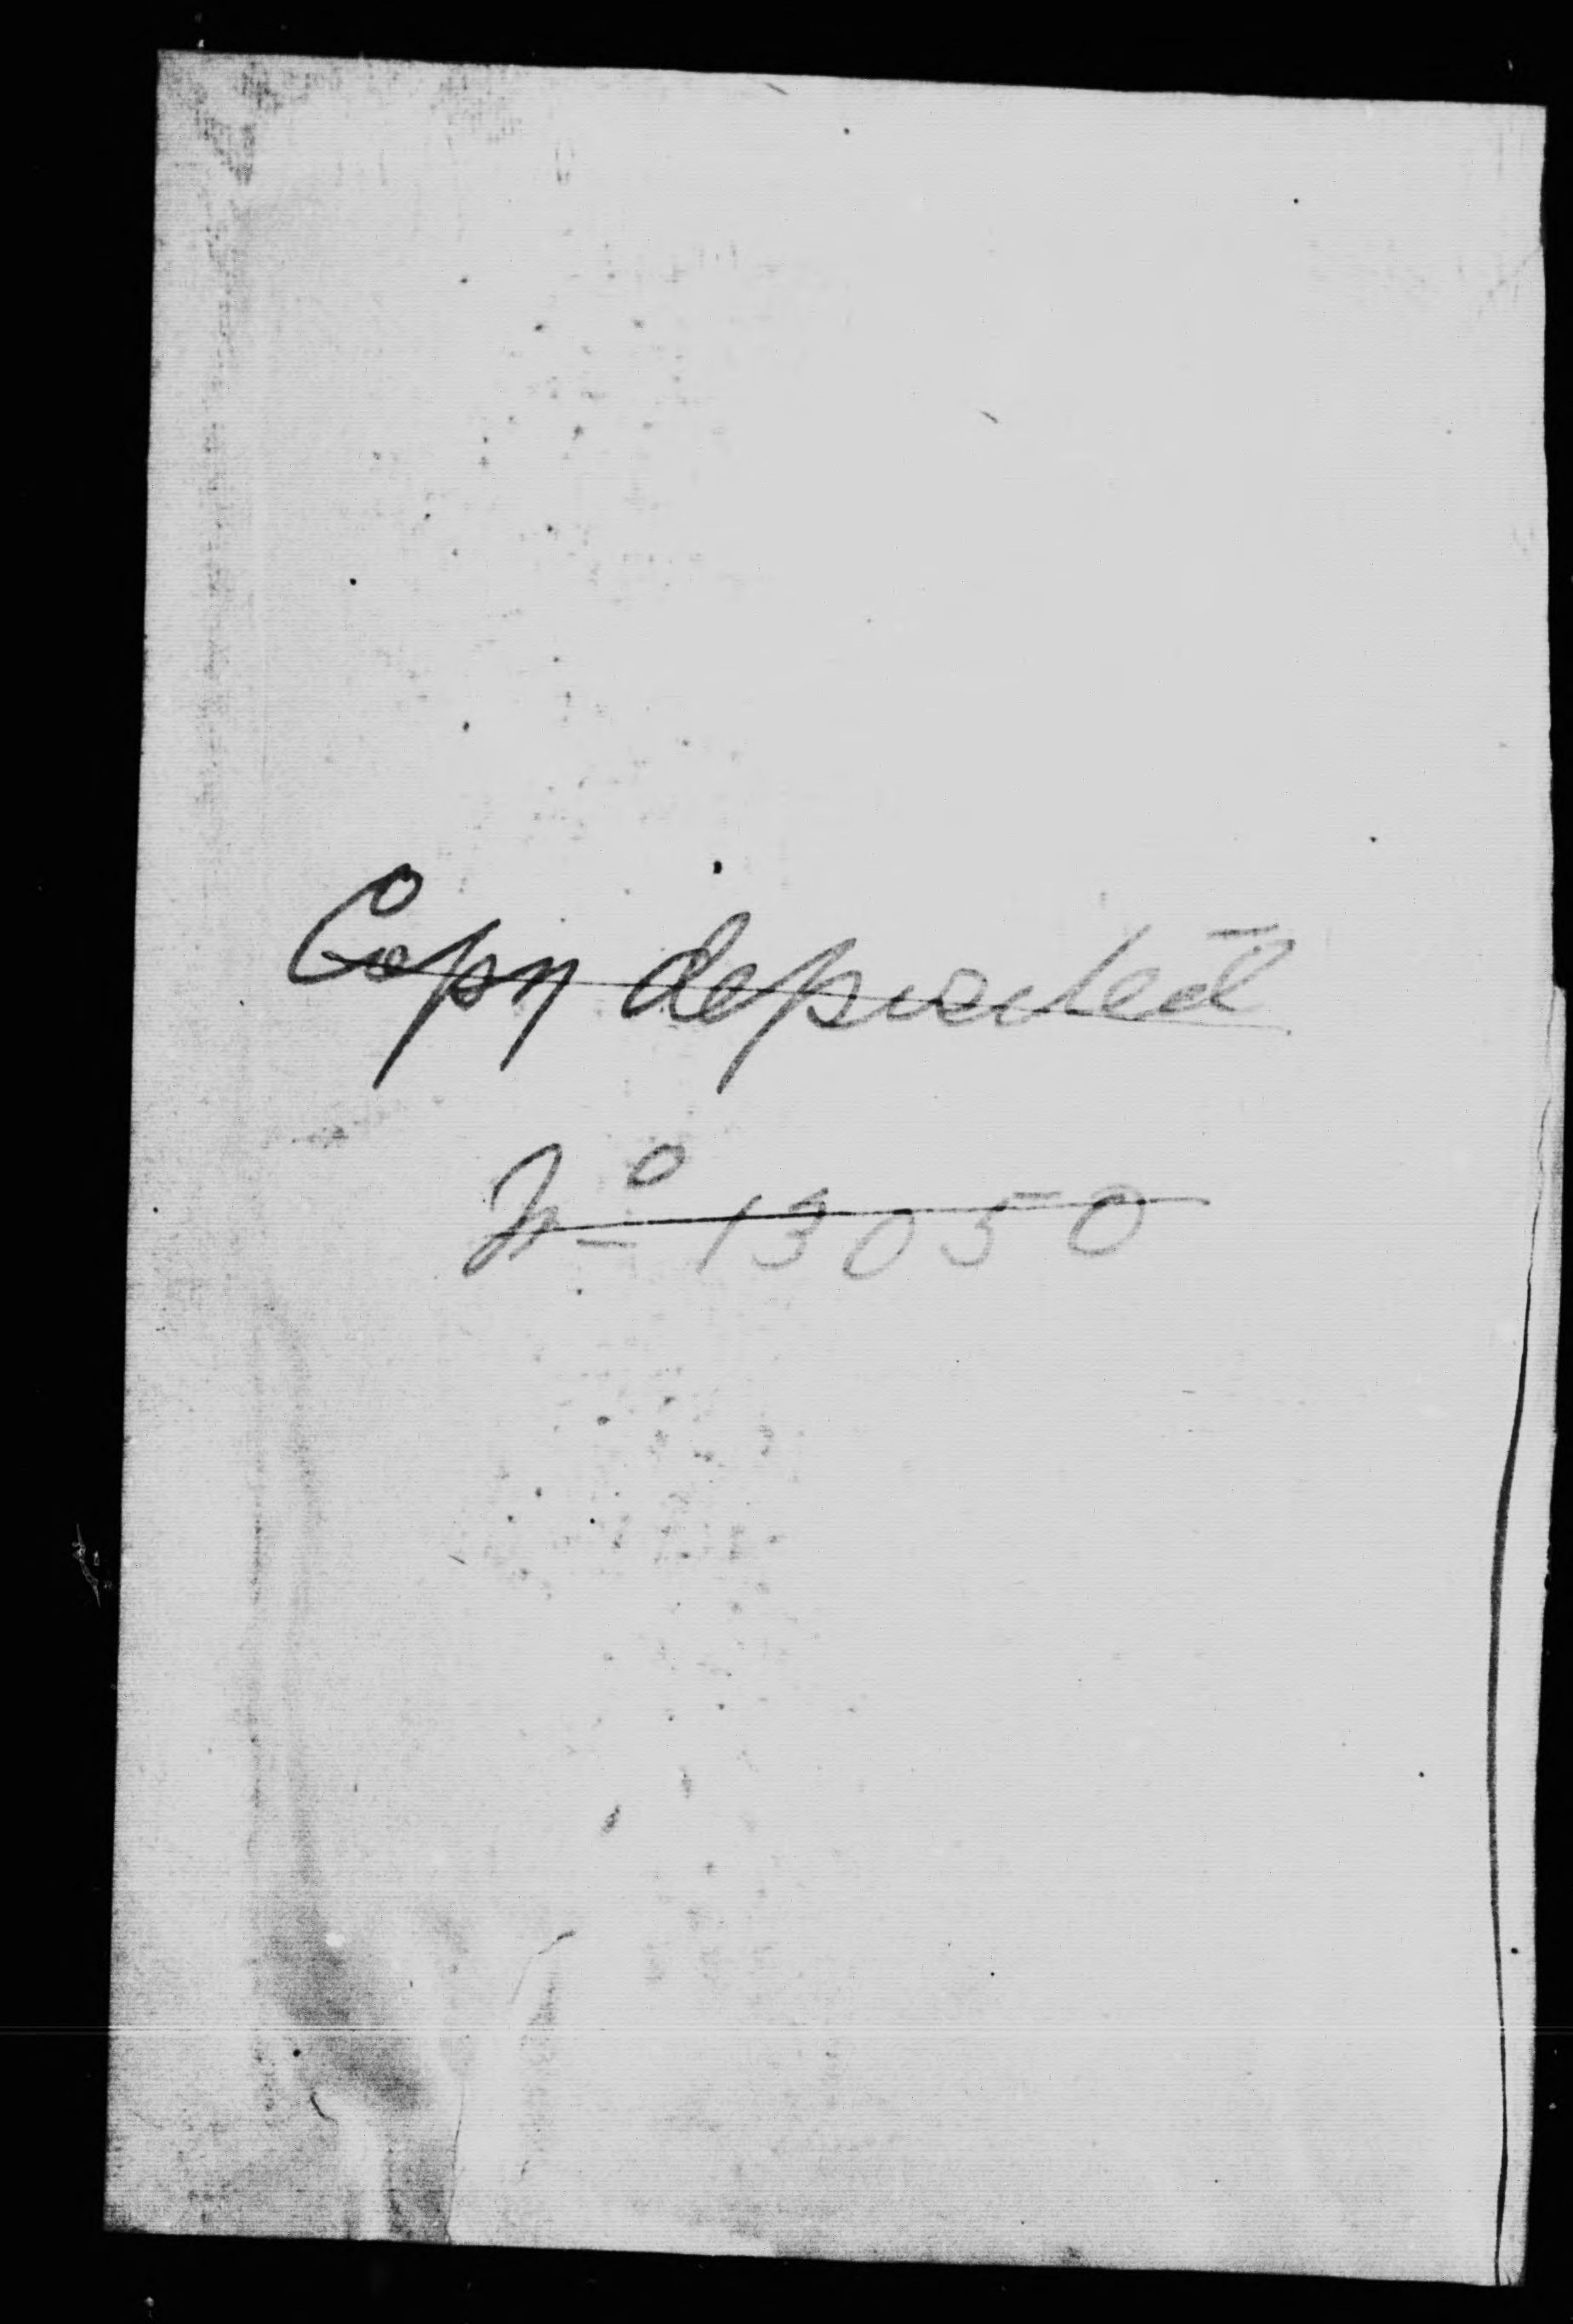 Copy deposited
No 13050